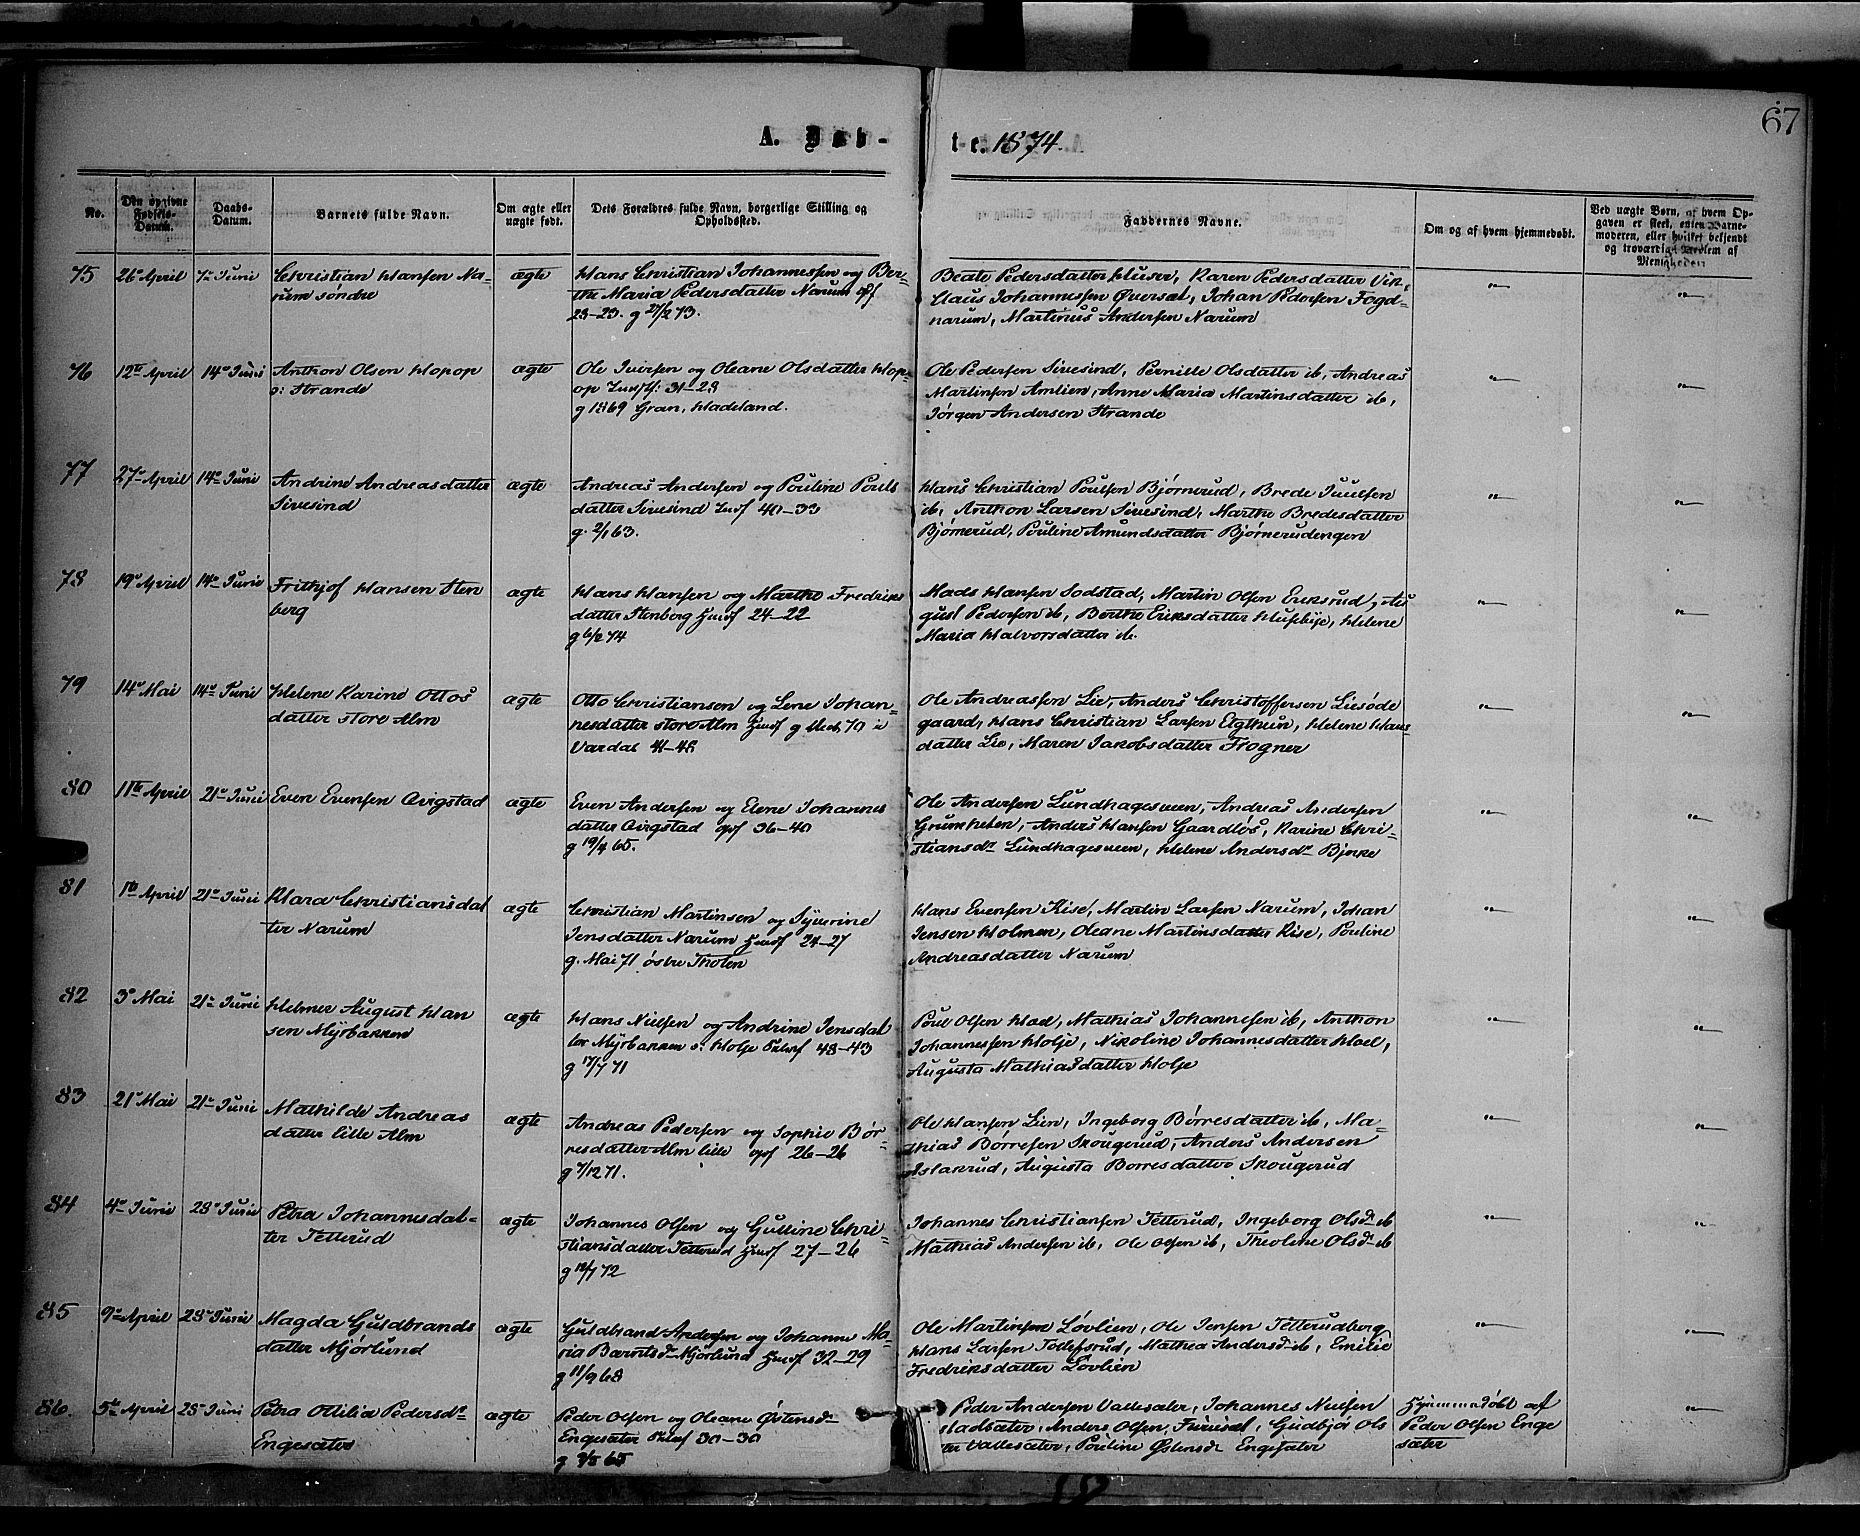 67
A. Døb-
te. 1874.
No.
Den opgivne Fødsels-Datum.
Daabs-Datum.
Barnets fulde Navn.
Om ægte eller uægte født.
Dets Forældres fulde Navn, borgerlige Stilling og Opholdssted.
Faddernes Navne.
Om og af hvem hjemmedøbt.
Ved uægte Børn, af hvem Opgaven er skeet, enten Barnemoderen, eller hvilket bekjendt og troværdigt Medlem af Menigheden
75 26 April 7 Juni Christian Hansen Na-
rum søndre
ægte
Hans Christian Johannessen og Ber-
the Maria Pedersdatter Narum
23-23. g 27/2 73.
Beate Pedersdatter Huser, Karen Pedersdatter Vik,
Claus Johannessen Øversæt, Johan Pedersen Fogd-
narum, Martinus Andersen Narum
76 12te April 14 Juni Anthon Olsen Hopop
s: Strande
ægte
Ole Iversen og Oleane Olsdatter Hop-
op 31-28
g 1869 Gran, Hadeland.
Ole Pedersen Sivesind, Pernille Olsdatter ib, Andreas
Martinsen Amlien, Anne Maria Martinsdatter ib,
Jørgen Andersen Strande
77 27 April 14 Juni Andrine Andreasdatter
Sivesind
ægte
Andreas Andersen og Pouline Pouls
datter Sivesind 40-33
g. 2/1 63.
Hans Christian Poulsen Bjørnerud, Brede Juulsen
ib, Anthon Larsen Sivesind, Marthe Bredesdatter
Bjørnerud, Pouline Amundsdatter Bjørnerudengen
78 19 April 14 Juni Frithjof Hansen Sten
berg
ægte
Hans Hansen og Marthe Fredriks
datter Stenberg 24-22
g 6/2 74
Mads Hansen Sodstad, Martin Olsen Eriksrud, Au
gust Pedersen ib, Berthe Eriksdatter Husebye, Helene
Maria Halvorsdatter ib.
79 14 Mai 14 Juni Helene Karine Ottos
datter store Alm
ægte
Otto Christiansen og Lene Johan-
nesdatter store Alm g 70 i
Vardal 41-45
Ole Andreassen Lie, Anders Christoffersen Liesøde
gaard, Hans Christian Larsen Elgthun, Helene Hans
datter Lie, Maren Jakobsdatter Frogner
80 11te April 21 Juni Even Evensen Qvigstad
ægte
Even Andersen og Elene Johannes
datter Qvigstad 36-40
g 19/4 65.
Ole Andersen Lundhagesveen, Andreas Andersen
Grumheten, Anders Hansen Gaardløs, Karine Chri-
stiansdr Lundhagesveen, Helene Andersdr Bjerke
81 1te April 21 Juni Klara Christiansdat
ter Narum
ægte
Christian Martinsen og Syverine
Jensdatter Narum 24-27
g. Mai 71 østre Thoten
Hans Evensen Kise, Martin Larsen Narum, Johan
Jensen Holmen, Oleane Martinsdatter Kise, Pouline
Andreasdatter Narum
82 3 Mai 21 Juni Helmer August Han
sen Myrbakken
ægte
Hans Nielsen og Andrine Jensdat
ter Myrbakken s: Holje 48-43
g 17/7 71
Poul Olsen Hoel, Mathias Johannesen ib, Anthon
Johannessen Holje, Nikoline Johannesdatter Hoel,
Augusta Mathiasdatter Holje
83 21 Mai 21 Juni Mathilde Andreas
datter lille Alm
ægte
Andreas Pedersen og Sophie Bør-
resdatter Alm lille 26-26
g 7/12 71.
Ole Hansen Lien, Ingeborg Børresdatter ib, Ma-
thias Børresen Skougerud, Anders Andersen
Islakrud, Augusta Borresdatter Skougerud
84 4 Juni 28 Juni Petra Johannesdat-
ter Tetterud
ægte
Johannes Olsen og Gulline Chri-
stiansdatter Tetterud 27-26
g 12/7 72
Johannes Christiansen Tetterud, Ingeborg Olsdr ib
Mathias Andersen ib, Ole Olsen ib, Theoline Olsdr ib
85 9 April 28 Juni Magda Guldbrands
datter Mjørlund
ægte
Guldbrand Andersen og Johanne Ma-
ria Barntsdr Mjørlund 32-29
g 11/9 68
Ole Martinsen Løvlien, Ole Jensen Tetterudberg
Hans Larsen Tollefsrud, Mathea Andersdr ib, Emilie
Fredriksdatter Løvlien
86. 5te April 28 Juni Petra Otilia Pedersdr
Engesæter
ægte
Peder Olsen og Oleane Østensdr
Engesæter 30-30
g 65
Peder Andersen Vallesæter, Johannes Nielsen
stadsæter, Anders Olsen, Furuset, Gudbjør Ols
ter Vallesæter, Pouline Østensdr Engesæter
Hjemmedøbt af
Peder Olsen Enge
sæter